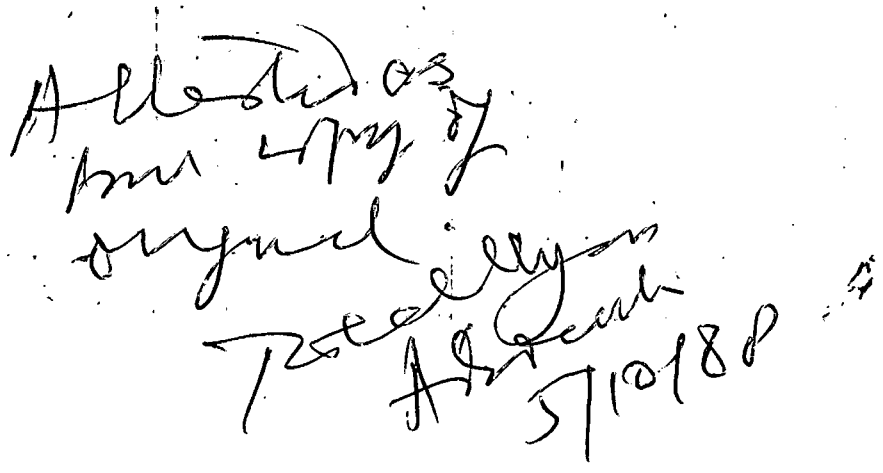 Attested as
true copy of
original
Advocate
5/10/88